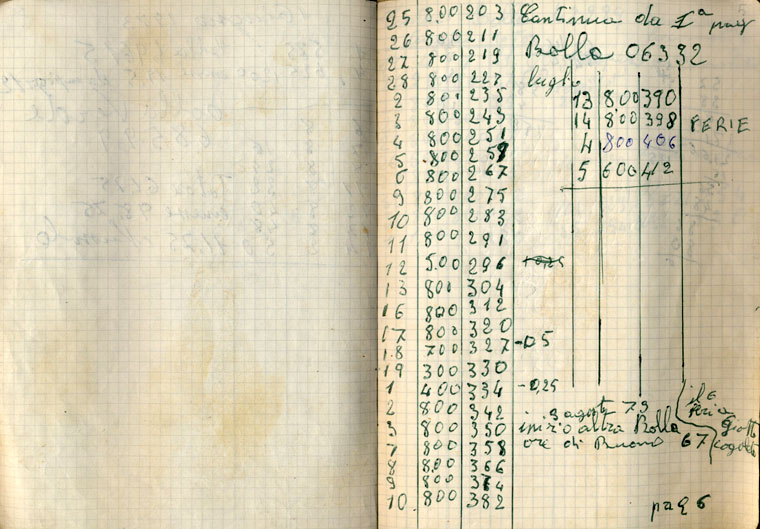 25 8.00 203 Continua da 1ª pag
26 800 211 Bolla 06332
27 800 219
28 800 227 luglio
2 800 235 13 800 390
3 800 243 14 800 398 FERIE
4 800 251 4 800 406
5 800 259 5 600 412
6 800 267
9 800 275
10 800 283
11 800 291
12 5.00 296
13 800 304
16 800 312
17 800 320
18 700 327 -0,5
19 300 330
1 400 334 -0,25
2 800 342 3 agosto 73 il 6
3 800 350 inizio altra Bolla ferie
7 800 358 ore di Buono 67
8 8.00 366
9 800 374
10 800 382 pag 6